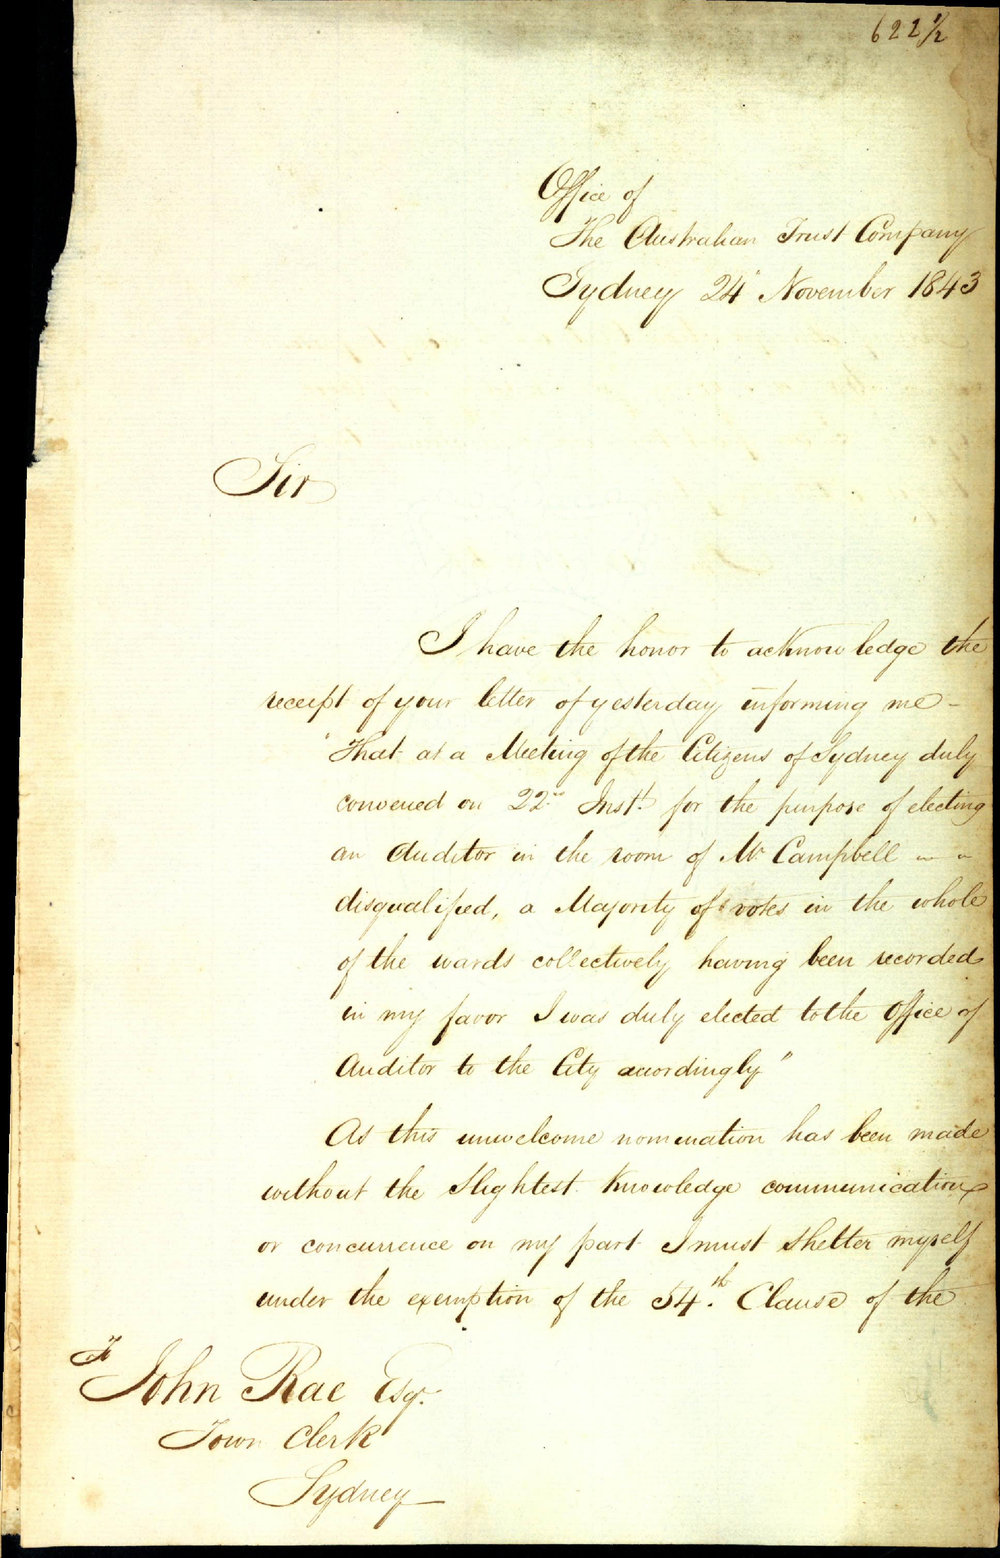 622½
Office of
The Australian Trust Company
Sydney 24 November 1843
Sir
I have the honor to acknowledge the
receipt of your letter of yesterday informing me -
"That at a Meeting of the Citizens of Sydney duly
convened on 22nd Inst. for the purpose of electing
an Auditor in the room of Mr Campbell
disqualified, a Majority of votes in the whole
of the wards collectively having been recorded
in my favor I was duly elected to the Office of
Auditor to the City accordingly"
As this unwelcome nomination has been made
without the slightest Knowledge communication
or concurrence on my part I must shelter myself
under the exemption of the 54.th Clause of the
To
John Rae Esqr.
Town Clerk
Sydney